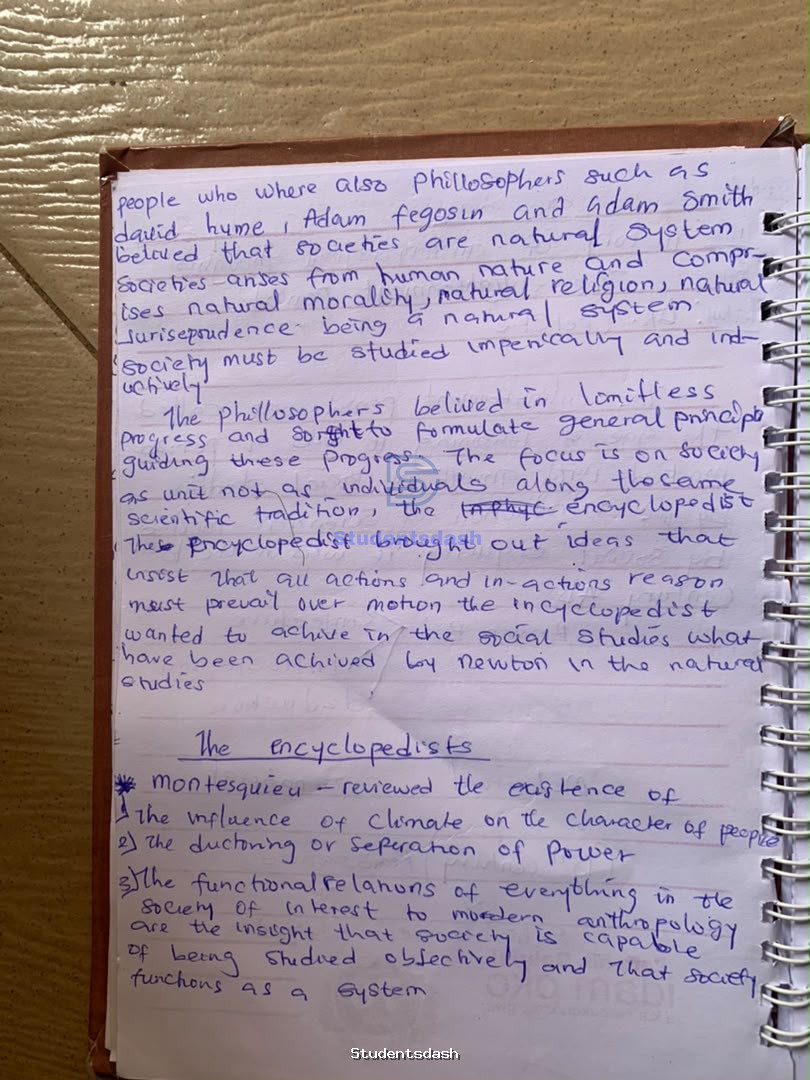 people who where also phillosophers such as
david hume, Adam fegosin and adam smith
belived that societies are natural system
societies arises from human nature and compr-
ises natural morality, natural religion, natural
surisepsudence being a natural system
society must be studied impenically and ind-
uctively
The phillosophers belived in lomitless
progress and soright to formulate general principls
guiding these progress. The focus is on society
as unit not as individuals along thesame
scientific tradition, the encyclopedist
These Encyclopedist brought out ideas that
insist that all actions and in-actions reason
must prevail over motion the incyclopedist
wanted to achive in the social studies what
have been achived by newton in the natural
studies
The encyclopedists
* montesquieu - reviewed the existence of
1 The influence of climate on the character of people
2) The ductoning or seperation of power
3) The functional relations of everything in the
society of interest to mordern anthropology
are the insight that society is capable
of being studied obsectively and that society
functions as a system
Studentsdash
Studentsdash